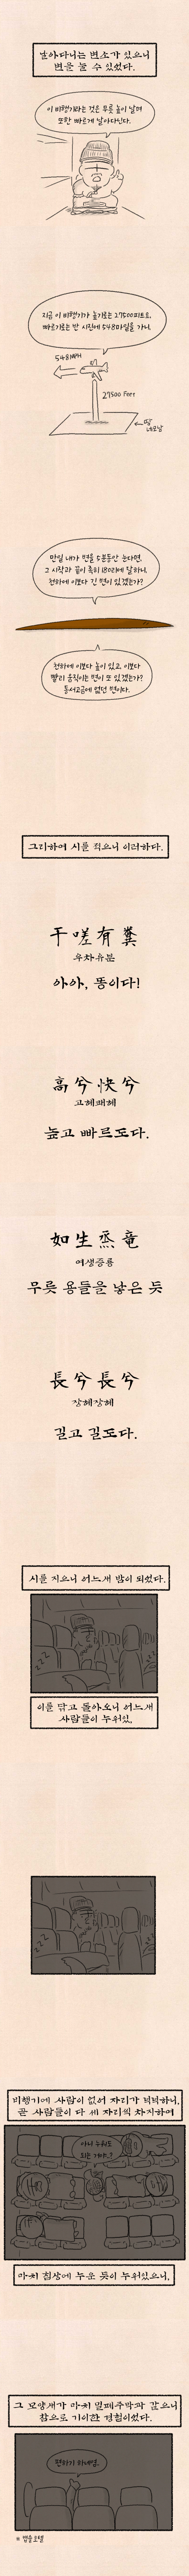 날아다니는 변소가 있으니
변을 볼 수 있었다.
이 비행기라는 것은 무릇 높이 날며
또한 빠르게 날아다닌다.
지금 이 비행기가 높기로는 27500피트요,
빠르기로는 반 시진에 548마일을 가니,
548MPH
27500 Feet
땅
네모남
만일 내가 변을 5분동안 눈다면,
그 시작과 끝이 족히 180리에 달하니,
천하에 이보다 긴 변이 있겠는가?
천하에 이보다 높이 있고, 이보다
빨리 움직이는 변이 또 있겠는가?
동서고금에 없던 변이다.
그리하여 시를 적으니 이러하다.
于嗟有糞
우차유분
아아, 똥이다!
高兮快兮
고혜쾌혜
높고 빠르도다.
如生烝竜
여생증룡
무릇 용들을 낳은 듯
長兮長兮
장혜장혜
길고 길도다.
시를 지으니 어느새 밤이 되었다.
zzz
zzz
이를 닦고 돌아오니 어느새
사람들이 누워있,
zzz
zzz
비행기에 사람이 없어 자리가 넉넉하니,
곧 사람들이 다 세 자리씩 차지하며
아니 누워도
되는 거야..?
마치 침상에 누운 듯이 누워있으니,
그 모양새가 마치 밀폐주막과 같으니
참으로 기이한 경험이었다.
편하기 하네염.
* 캡슐호텔